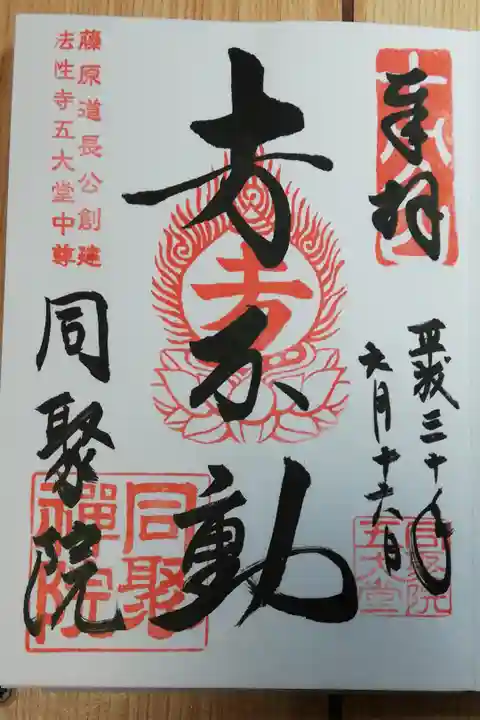 奉拝
平成三十年
六月十六日
同聚院
五大堂
不動
藤原道長公創建
法性寺五大堂中尊
同聚院
同聚
禪院